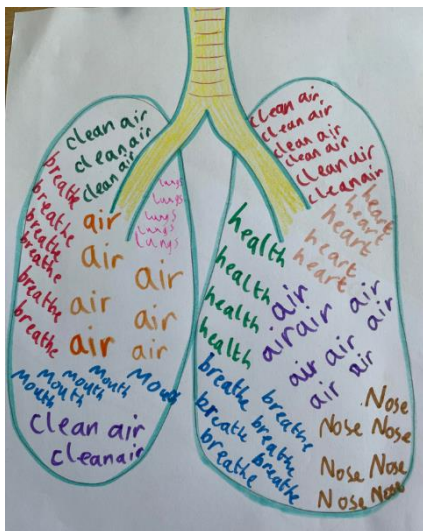 clean air
clean air
clean air
breathe
breathe
breathe
breathe
breathe
breathe
lungs
lungs
lungs
lungs
lungs
air
air
air
air
air
air
air
mouth mouth mouth mouth mouth
mouth
clean air
cleanair
clean air
clean air
clean air
clean air
clean air
cleanair
heart
heart
heart
heart
heart
health
health
health
health
air
air air
air
air
air air
air air
breathe breathe
breathe breathe
breathe breathe
Nose
Nose Nose
Nose Nose
Nose Nose